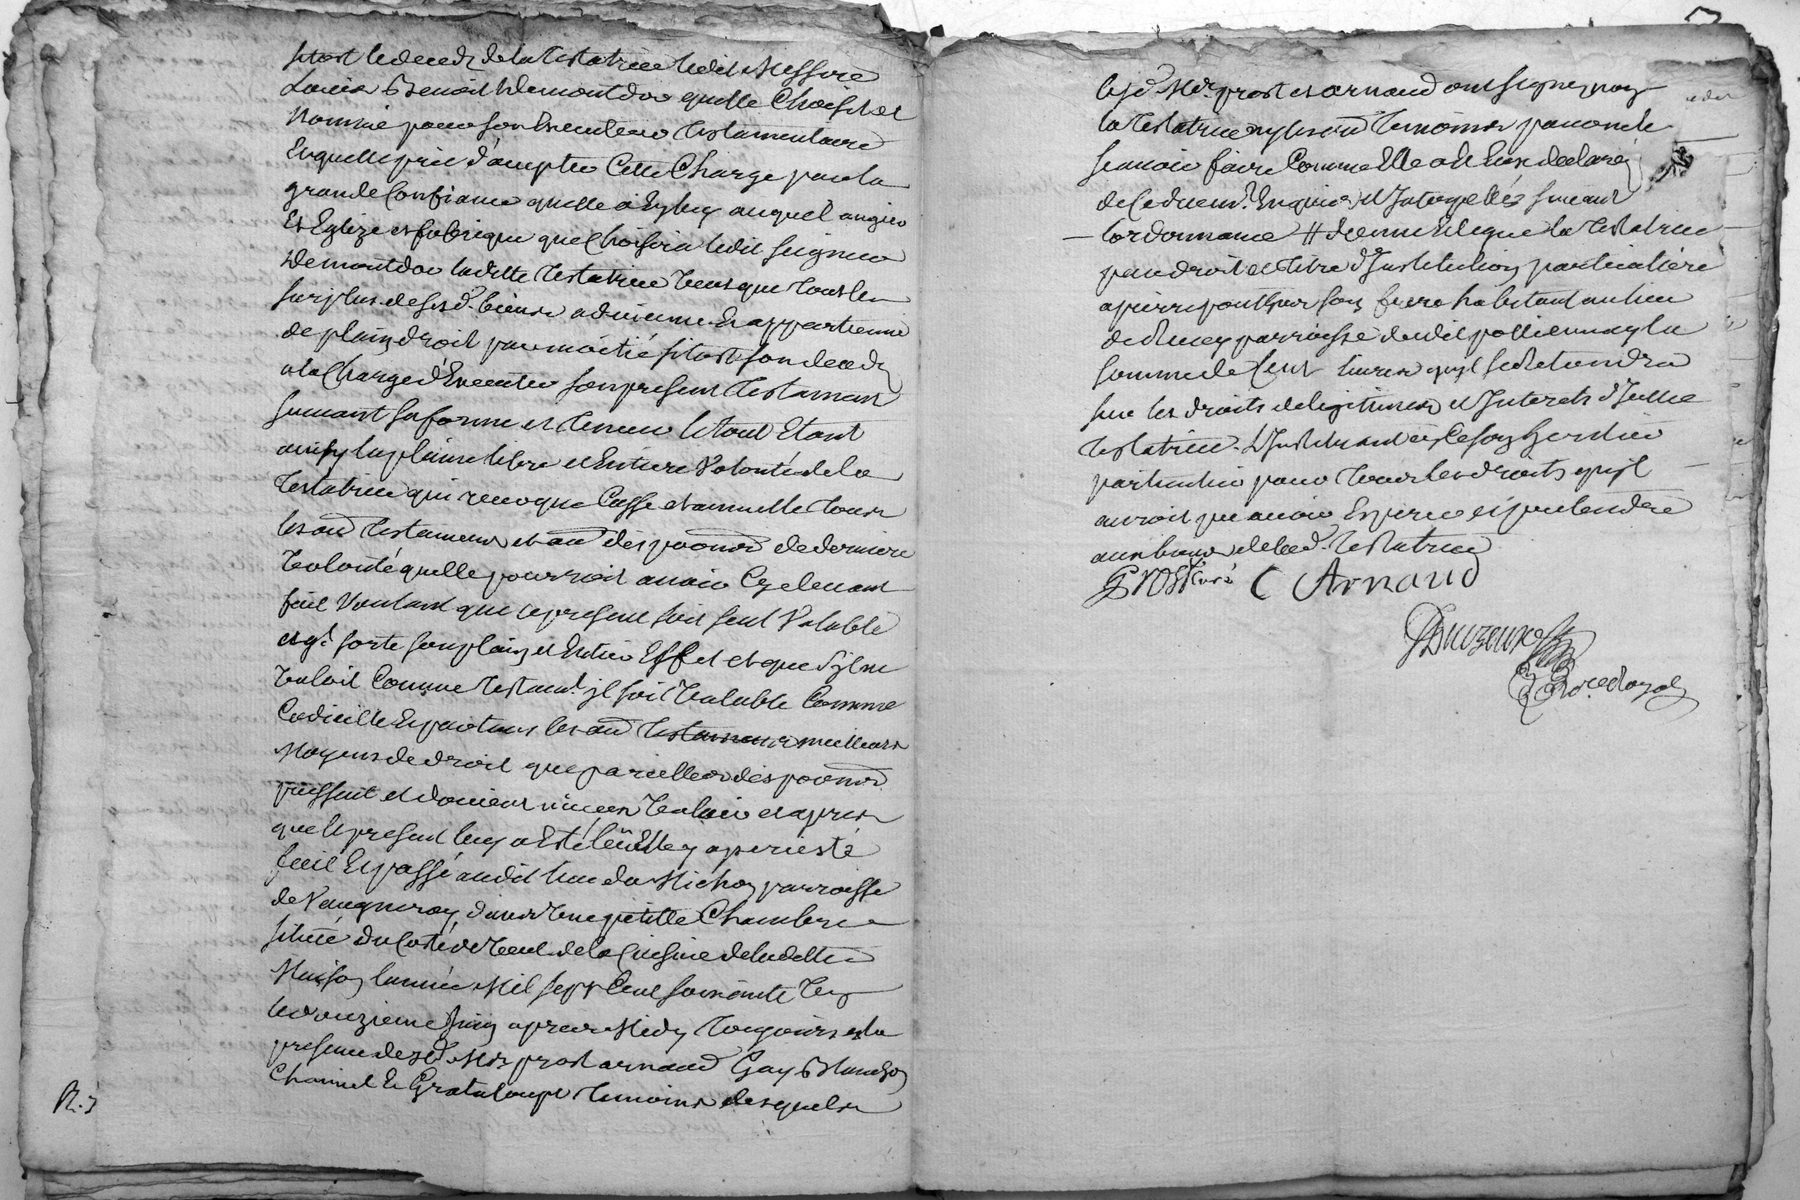 sitost le deced de la Testatrice ledit Messire
Louis Benoit Demontdor quelle Choisit et
Nomme pour son Executeur Testamentaire
Et quelle prie d'accepter Cette Charge par la
grande Confiance quelle a En luy auquel
Et Eglize et fabrique que Choisira ledit Seigneur
Demontdor ladite Testatrice veut que tout le
surplus de sesd. biens advienne Et appartienne
de plain droit par moitié sitost son deced
a la Charge d'Executer son present Testament
suivant sa forme et teneur le tout Etant
ainsy la plaine libre et Entiere Volonté de la
Testatrice qui revoque Casse et annulle tous
les au͠ Testamens et au͠ dispoõns de derniere
volonté quelle pourroit avoir Cy devant
fait Voulant que le present soit seul Valable
et q.l sorte son plain et Entier Effet et que s'il ne
valoit Comme Testam.t jl soit valable Comme
Codicille Et par tous les au͠ meilleurs
Moyens de droit que pareilles dispoõns
puissent et doivent mieux valoir et apres
que le present luy a Esté lû Elle y a persisté
fait Et passé audit lieu du Michon parroisse
de Vaugneray dans une petitte Chambre
située du Costé de vent de la Cuisine de ladette
Maison l'année Mil sept Cent soixante un
le onzieme Juin apres Midy toujours en la
presence desd. Mrs prost arnaud Gay Blanchon
Et Grataloup temoins desquels
R. 3
lesd. Mrs. prost et arnaud ont signé non
la Testatrice ny les au͠ temoins pour ne le
scavoir faire Comme Elle a Et Eux declaré
de Ce duem.t Enquis et Interpellés suivant
l'ordonnance # donne Et legue la Testatrice
par droit et titre d'Institution particuliere
a pierre son frere habitant au lieu
de parroisse dudit pollionnay la
somme de Cent livres qu'jl se retiendra
sur les droits de legitimes et Interets d'Jcelle
Testatrice L'Instituant En Ce son heritier
particulier pour tous les droits qu'jl
auroit peu avoir Esperer et pretendre
aux biens de lad. Testatrice
Prost Curé C Arnaud